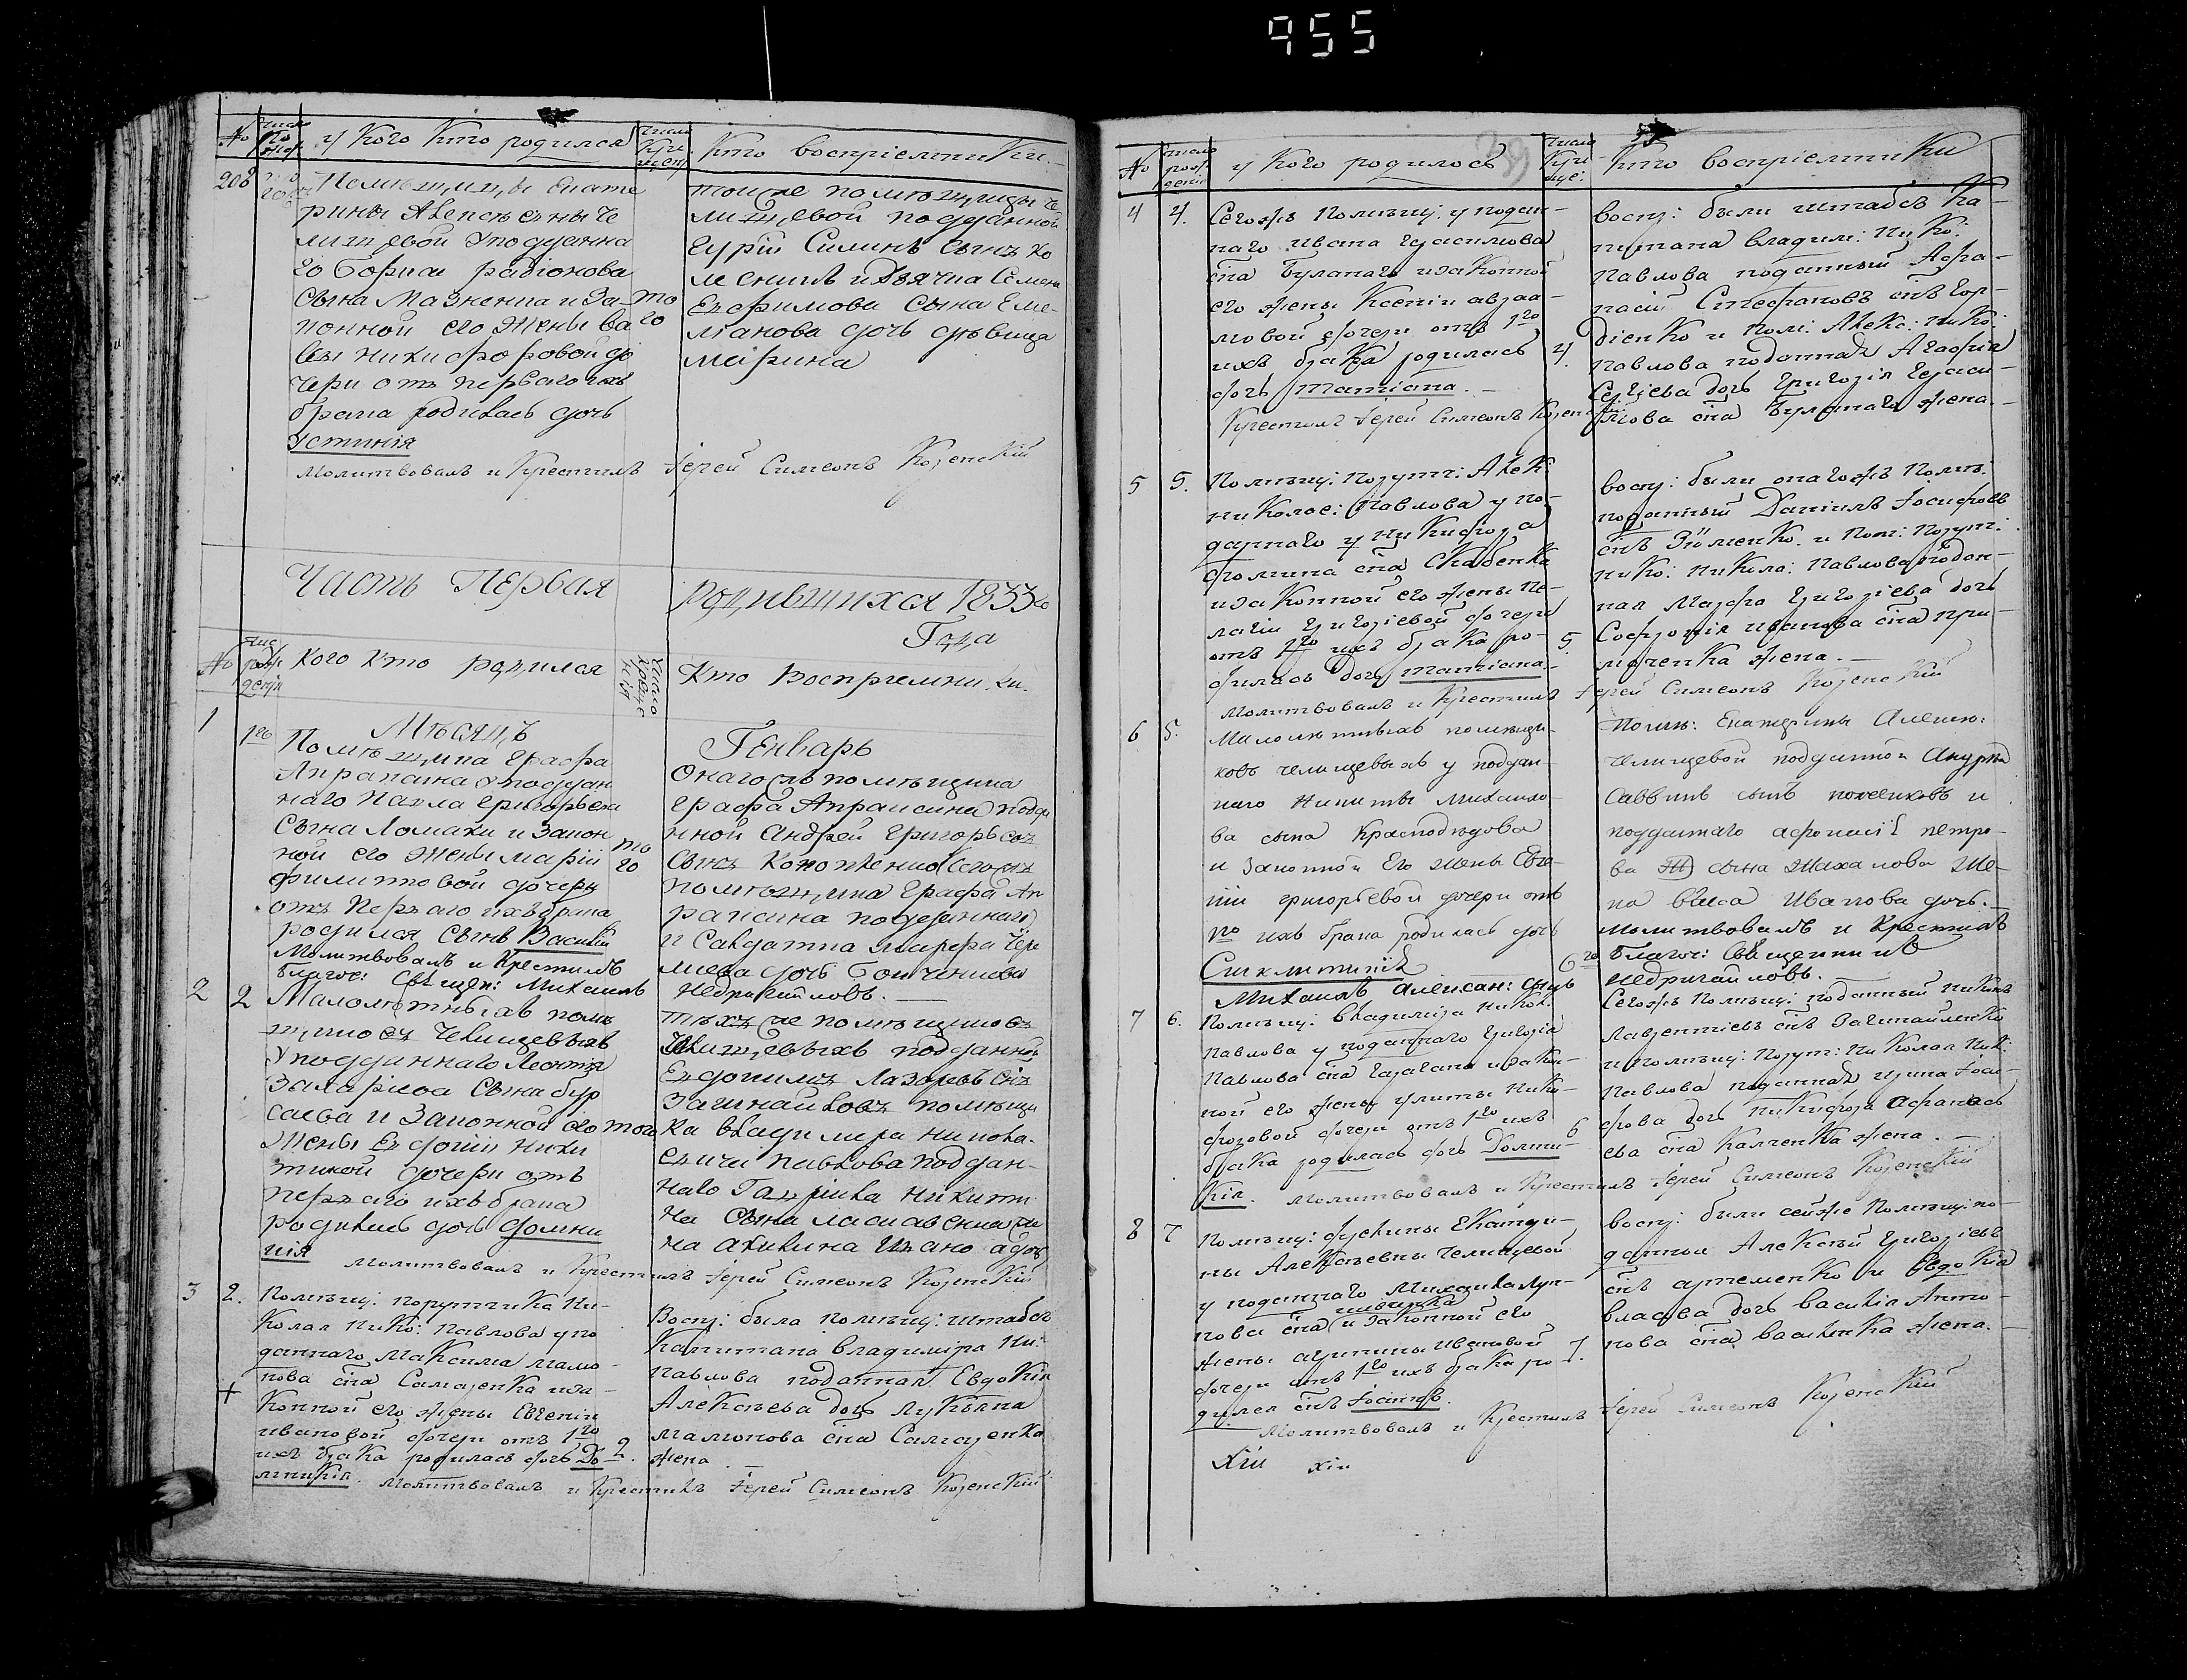 955
No
число рож:
у кого кто родился
число крещ
кто восприемники
208
Помѣщицы Екате
рины Алексѣевны Че
лищевой у подданна
го Бориса радіонова
сына Мазненка и За
конной его жены Ва
сы никифоровой до
чери отъ перваго ихъ
брака родилась дочь
Устинія
того
той же помѣщицы Че
лищевой подданной
Гурій Силинъ сынъ Ко
лесникъ и дьячка Семена
Евфимова сына Еме-
лianова дочь дѣвица
марина
молитвовалъ и крестилъ Іерей Симеонъ Козенскій
Часть Первая
родившихся 1833го
Года
No
Кого кто родился
Кто Восприемники
1
1го
Мѣсяцъ
Генварь
Помѣщика Графа
Апраксина у поддан
наго Павла Григорьева
сына Ломаки и Закон
ной его жены маріи
филиповой дочери
отъ перваго ихъ брака
родился сынъ Василій
молитвовалъ и крестилъ
благоч: Священ: Михаилъ
того
Онагожъ помѣщика
графа Апраксина подда
нной Андрей Григорьевъ
сынъ Кононенко сегожъ
помѣщика Графа Ап
раксина подданнаго
и Салдатка марфа
дочь
Недригайловъ.
2
2
Малолѣтныхъ помѣ
щиковъ Челищевыхъ
у подданнаго Леонтія
Захаріева сына бур
саева и Законной его
жены Евдокіи ники
тиной дочери отъ
перваго ихъ брака
родилась дочь Домни
кія
того
тѣхъ же помѣщиковъ
Челищевыхъ подданной
Евдокимъ Лазаревъ снъ
Зачинайловъ помѣщи
ка владимера никола-
евича павлова поддан-
наго Гаврiила никити
на сына
на Акилина Ивано а дочь
молитвовалъ и крестилъ Іерей Симеонъ Козенскій
3
2.
Помѣщ: порутчика Ни-
колая нико: Павлова у по
даннаго Максима мамо-
нова сна Самаренка иза-
конной его жены Евгеніи
ивановой дочери отъ 1го
ихъ брака родилась дочь До
мникія.
2.
Воспр: была помѣщ: штабсъ
капитана владиміра Ни:
павлова поданная Евдокія
Алексѣева дочь лукьяна
мамонова сна Самаренка
жена.
молитвовалъ и крестилъ Іерей Симеонъ Козенскій
No
число рож дения
у кого родилось
число кре ще:
кто восприемники
4
4.
Сегожъ помѣщ: у подан-
наго ивана Герасимова
сна Булатаго изаконной
его жены Ксеніи авраа-
мовой дочери отъ 1го
ихъ брака родилась
дочь татiана.
4.
воспр: были штабсъ ка-
питана владим: нико:
павлова поданный Афа-
насій Стефановъ снъ Гор-
діенко и пом: Алекс: нико:
павлова поданная Агафія
Сергіева дочь Григорія Гераси-
мова сна Булатаго жена.
Крестилъ Іерей Симеонъ Козенскій
5
5.
Помѣщ: порутч: Алек:
николае: Павлова у по-
даннаго у никифора
фомина сна Скабенка
изаконной его жены Пе-
лагіи Григоріевой дочери
отъ 1го ихъ брака ро-
дилась дочь татiана.
5.
воспр: были онагожъ помѣ:
поданный Даніилъ Іосифовъ
снъ Зименко и пом: порут:
нико: никола: павлова подан-
ная Марфа Григоріева дочь
Софронія иванова сна при-
мофенка жена.
молитвовалъ и крестилъ Іерей Симеонъ Козенскій
6
5.
Малолѣтныхъ помѣщи-
ковъ челищевыхъ у поддан-
наго никиты михайло-
ва сына Краснодѣдова
и Законной Его жены Евге-
ніи григорьевой дочери отъ
1го ихъ брака родилась дочь
Сигклитикія
6го
Помѣ: Екатерины Алексѣ:
челищевой подданной
Саввинъ сынъ и
подданаго афонасія петро-
ва сына Жахалова Же-
на васса Иванова дочь.
молитвовалъ и крестилъ
Благоч: Священникъ
Михаилъ Алексан: сынъ
недригайловъ.
7
6.
Помѣщ: владиміра никол:
павлова у поданнаго Григорія
павлова сна изакон-
ной его жены улиты ники-
форовой дочери отъ 1го ихъ
брака родилась дочь Домни-
кія.
6
Сегожъ помѣщ: поданный никонъ
лаврентіевъ снъ Зачинайленко
и помѣщ: порут: николая ник:
павлова поданная ирина Іоси-
фова дочь никифора афанась
ева сна Калченка жена.
молитвовалъ и крестилъ Іерей Симеонъ Козенскій
8
7
Помѣщ: дѣвицы Екатери-
ны Алексѣевны челищевой
у поданнаго михаила лук-
нова сна изаконной его
жены агрипины ивановой
дочери отъ 1го ихъ брака ро
дился снъ Іосифъ.
7.
воспр: были сейже помѣщ: по-
данныи Алексѣй Григоріевъ
снъ артеменко и Евдокія
власова дочь василія Анто-
нова сна василенка жена.
молитвовалъ и крестилъ Іерей Симеонъ Козенскій